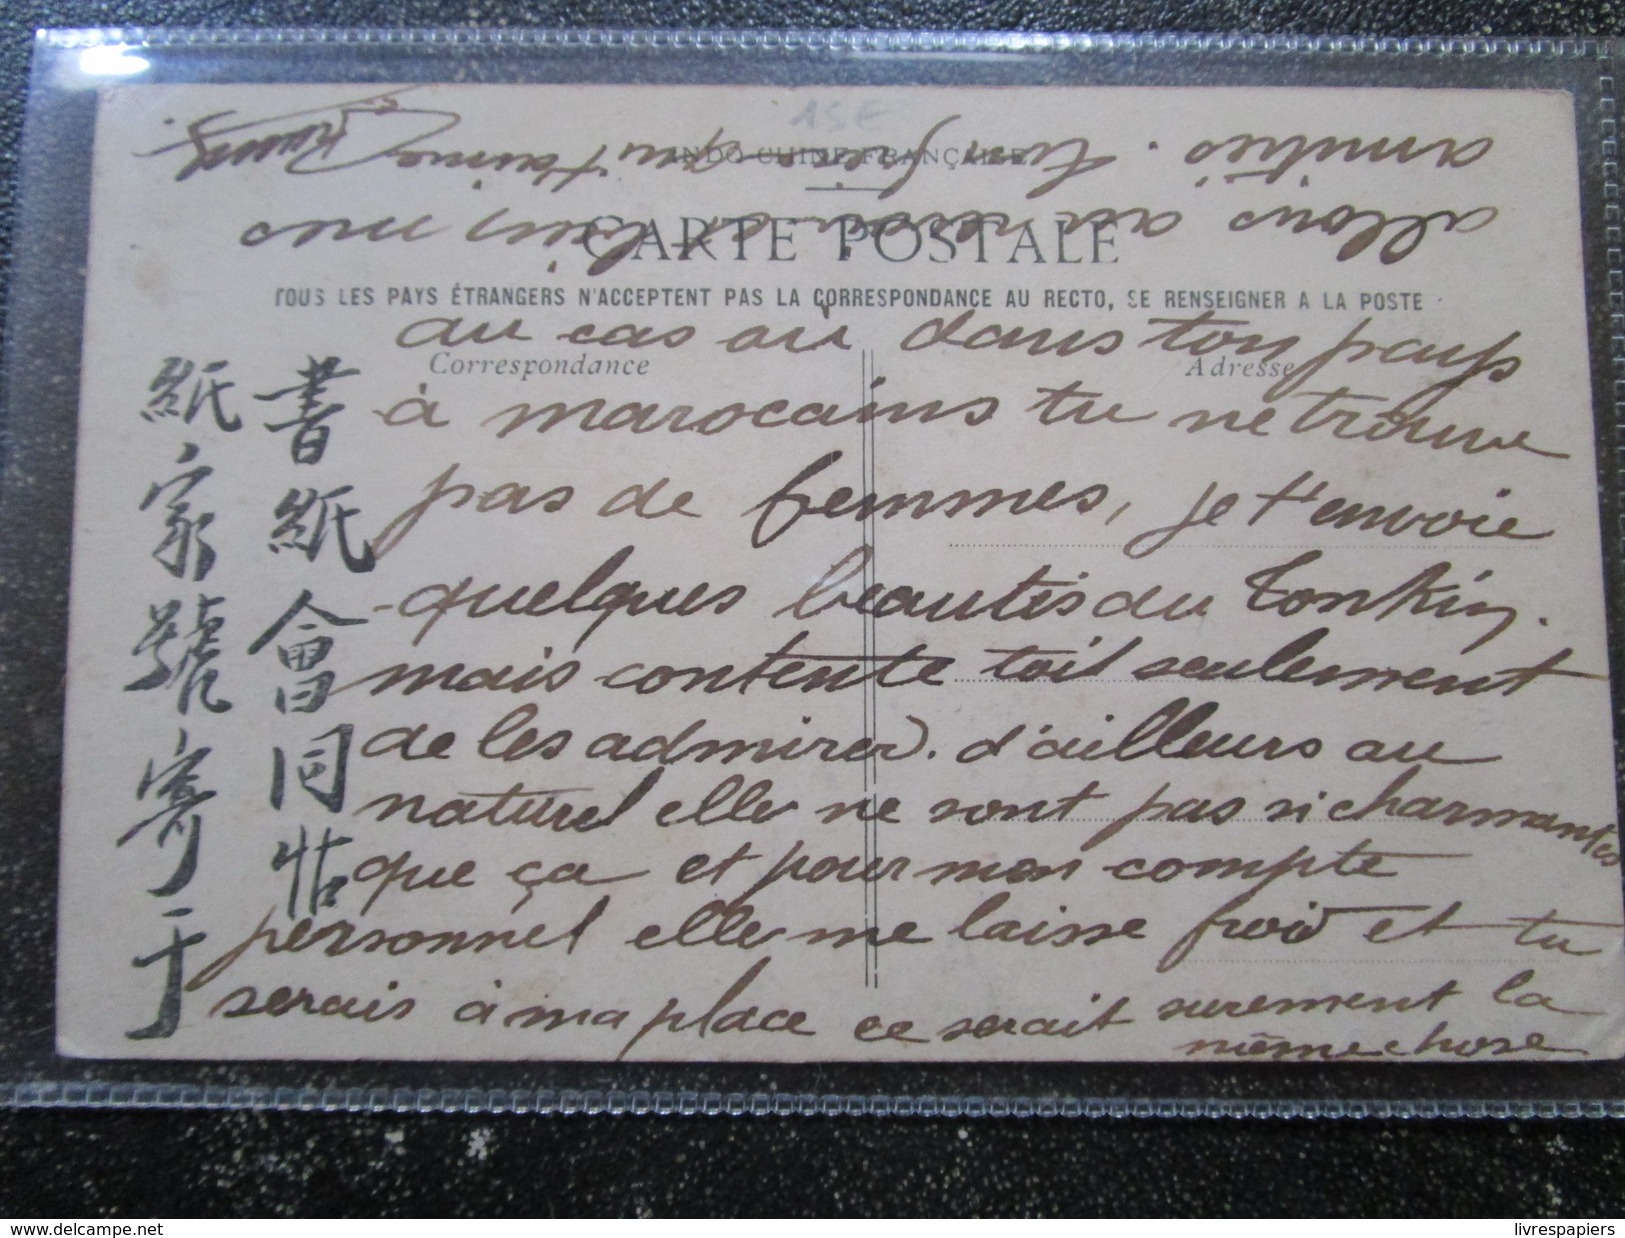 15E
INDO-CHINE FRANÇAISE
CARTE POSTALE
TOUS LES PAYS ÉTRANGERS N'ACCEPTENT PAS LA CORRESPONDANCE AU RECTO, SE RENSEIGNER A LA POSTE
Correspondance
Adresse
au cas ou dans ton pays
à marocains tu ne trouve
pas de femmes, je t'envoie
quelques beautés du Tonkin.
mais contente toit seulement
de les admirer. d'ailleurs au
naturel elle ne sont pas si charmantes
que ça et pour mon compte
personnel elle me laisse froid et tu
serais à ma place ce serait surement la
même chose
allons au revoir et mes
amitiés.
書紙會同
紙家號寄于
delcampe.net
livrespapiers